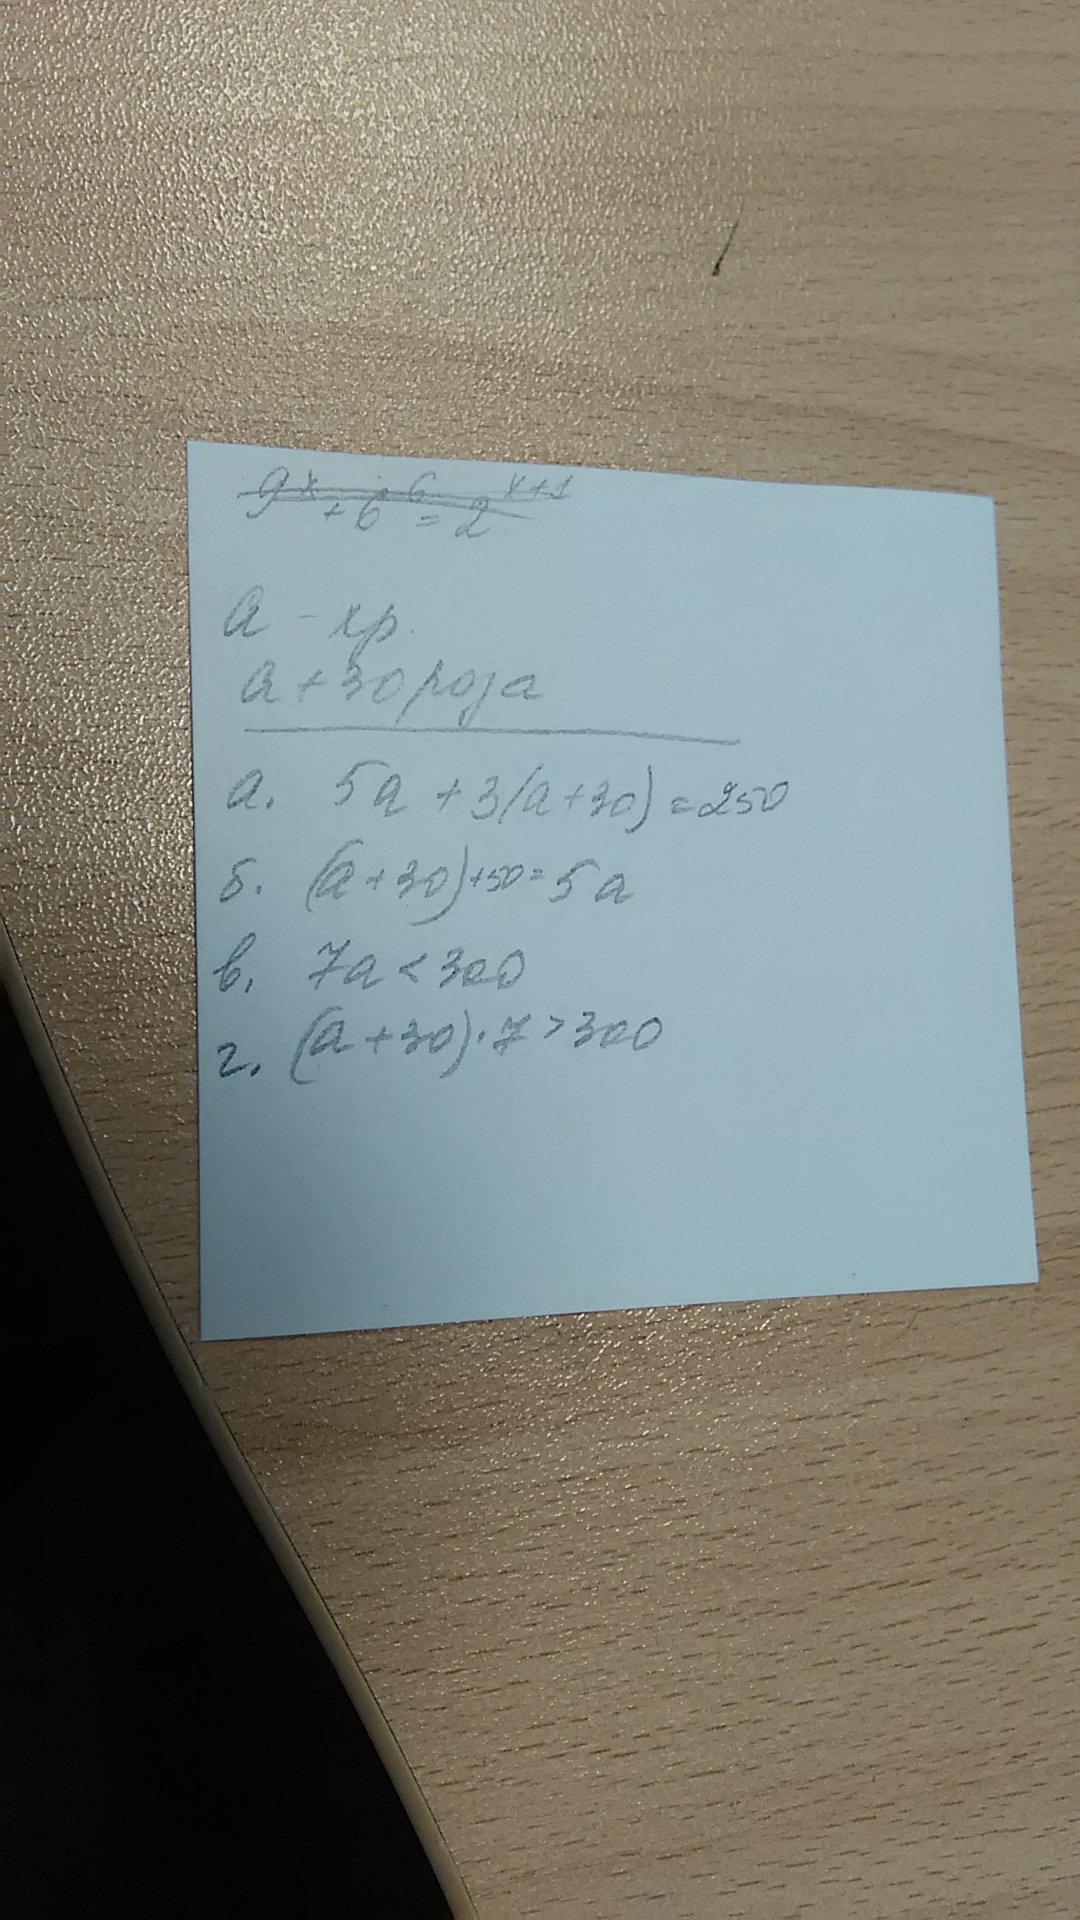 9ˣ + 6⁶ = 2ˣ⁺¹
a - хр.
a + 30 роза
а. 5a + 3(a + 30) = 250
б. (a + 30) + 50 = 5a
в. 7a < 300
г. (a + 30) · 7 > 300